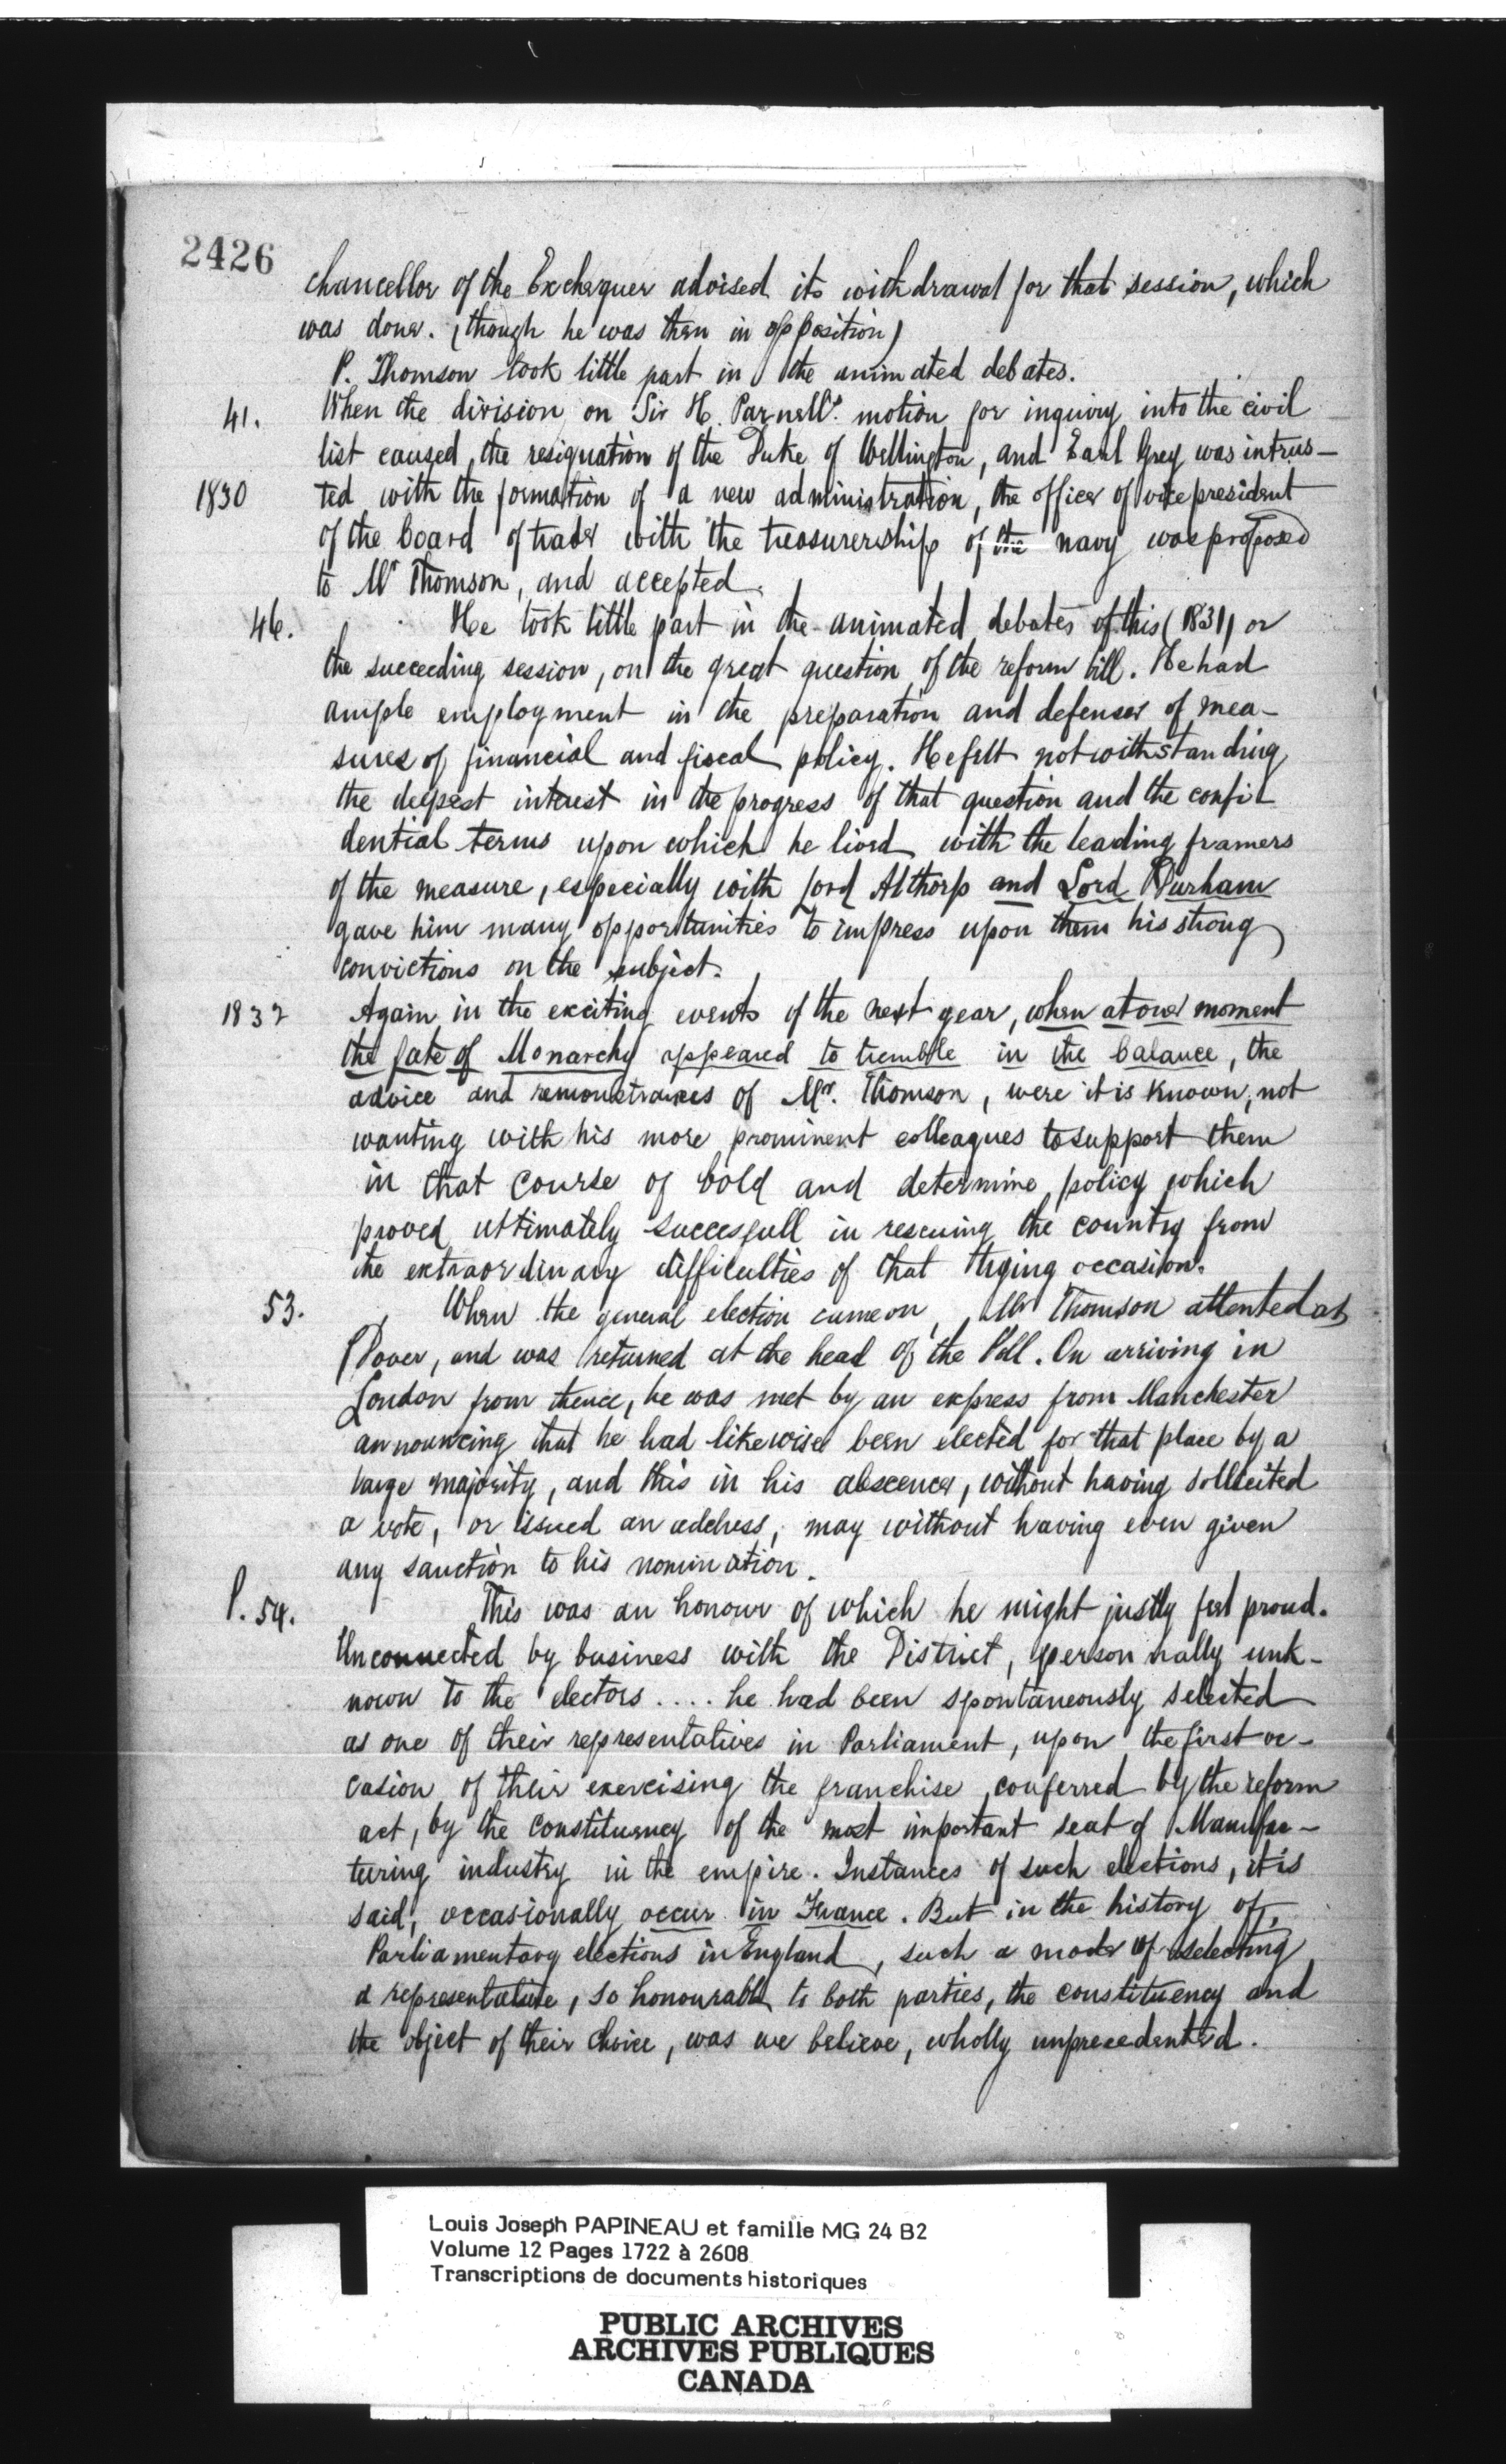 2426
chancellor of the Exchequer advised its withdrawal for that session, which
was done. (though he was then in opposition)
P. Thomson took little part in the animated debates.
41. When the division on Sir H. Parnell's motion for inquiry into the civil
list caused the resignation of the Duke of Wellington, and Earl Grey was intrus-
1830 ted with the formation of a new administration, the office of vice president
of the board of trade with the treasurership of the navy was proposed
to Mr Thomson, and accepted.
46. He took little part in the animated debates of this (1831) or
the succeeding session, on the great question of the reform bill. He had
ample employment in the preparation and defense of mea-
sures of financial and fiscal policy. He felt notwithstanding
the deepest interest in the progress of that question and the confi-
dential terms upon which he lived with the leading framers
of the measure, especially with Lord Althorp and Lord Durham
gave him many opportunities to impress upon them his strong
convictions on the subject.
1832 Again in the exciting events of the next year, when at one moment
the fate of Monarchy appeared to tremble in the balance, the
advice and remonstrances of Mr. Thomson, were it is known, not
wanting with his more prominent colleagues to support them
in that course of bold and determine policy which
proved ultimately succesfull in rescuing the country from
the extraordinary difficulties of that trying occasion.
53. When the general election came on, Mr Thomson attented at
Dover, and was returned at the head of the Poll. On arriving in
London from thence, he was met by an express from Manchester
announcing that he had likewise been elected for that place by a
large majority, and this in his abscence, without having sollicited
a vote, or issued an address, may without having even given
any sanction to his nomination.
P. 54. This was an honour of which he might justly feel proud.
Unconnected by business with the District, personnally unk-
nown to the electors .... he had been spontaneously selected
as one of their representatives in Parliament, upon the first oc-
casion of their exercising the franchise conferred by the reform
act, by the constituency of the most important seat of Manufac-
turing industry in the empire. Instances of such elections, it is
said, occasionally occur in France. But in the history of
Parliamentary elections in England, such a mode of selecting
a representative, so honourable to both parties, the constituency and
the object of their choice, was we believe, wholly unprecedented.
Louis Joseph PAPINEAU et famille MG 24 B2
Volume 12 Pages 1722 à 2608
Transcriptions de documents historiques
PUBLIC ARCHIVES
ARCHIVES PUBLIQUES
CANADA